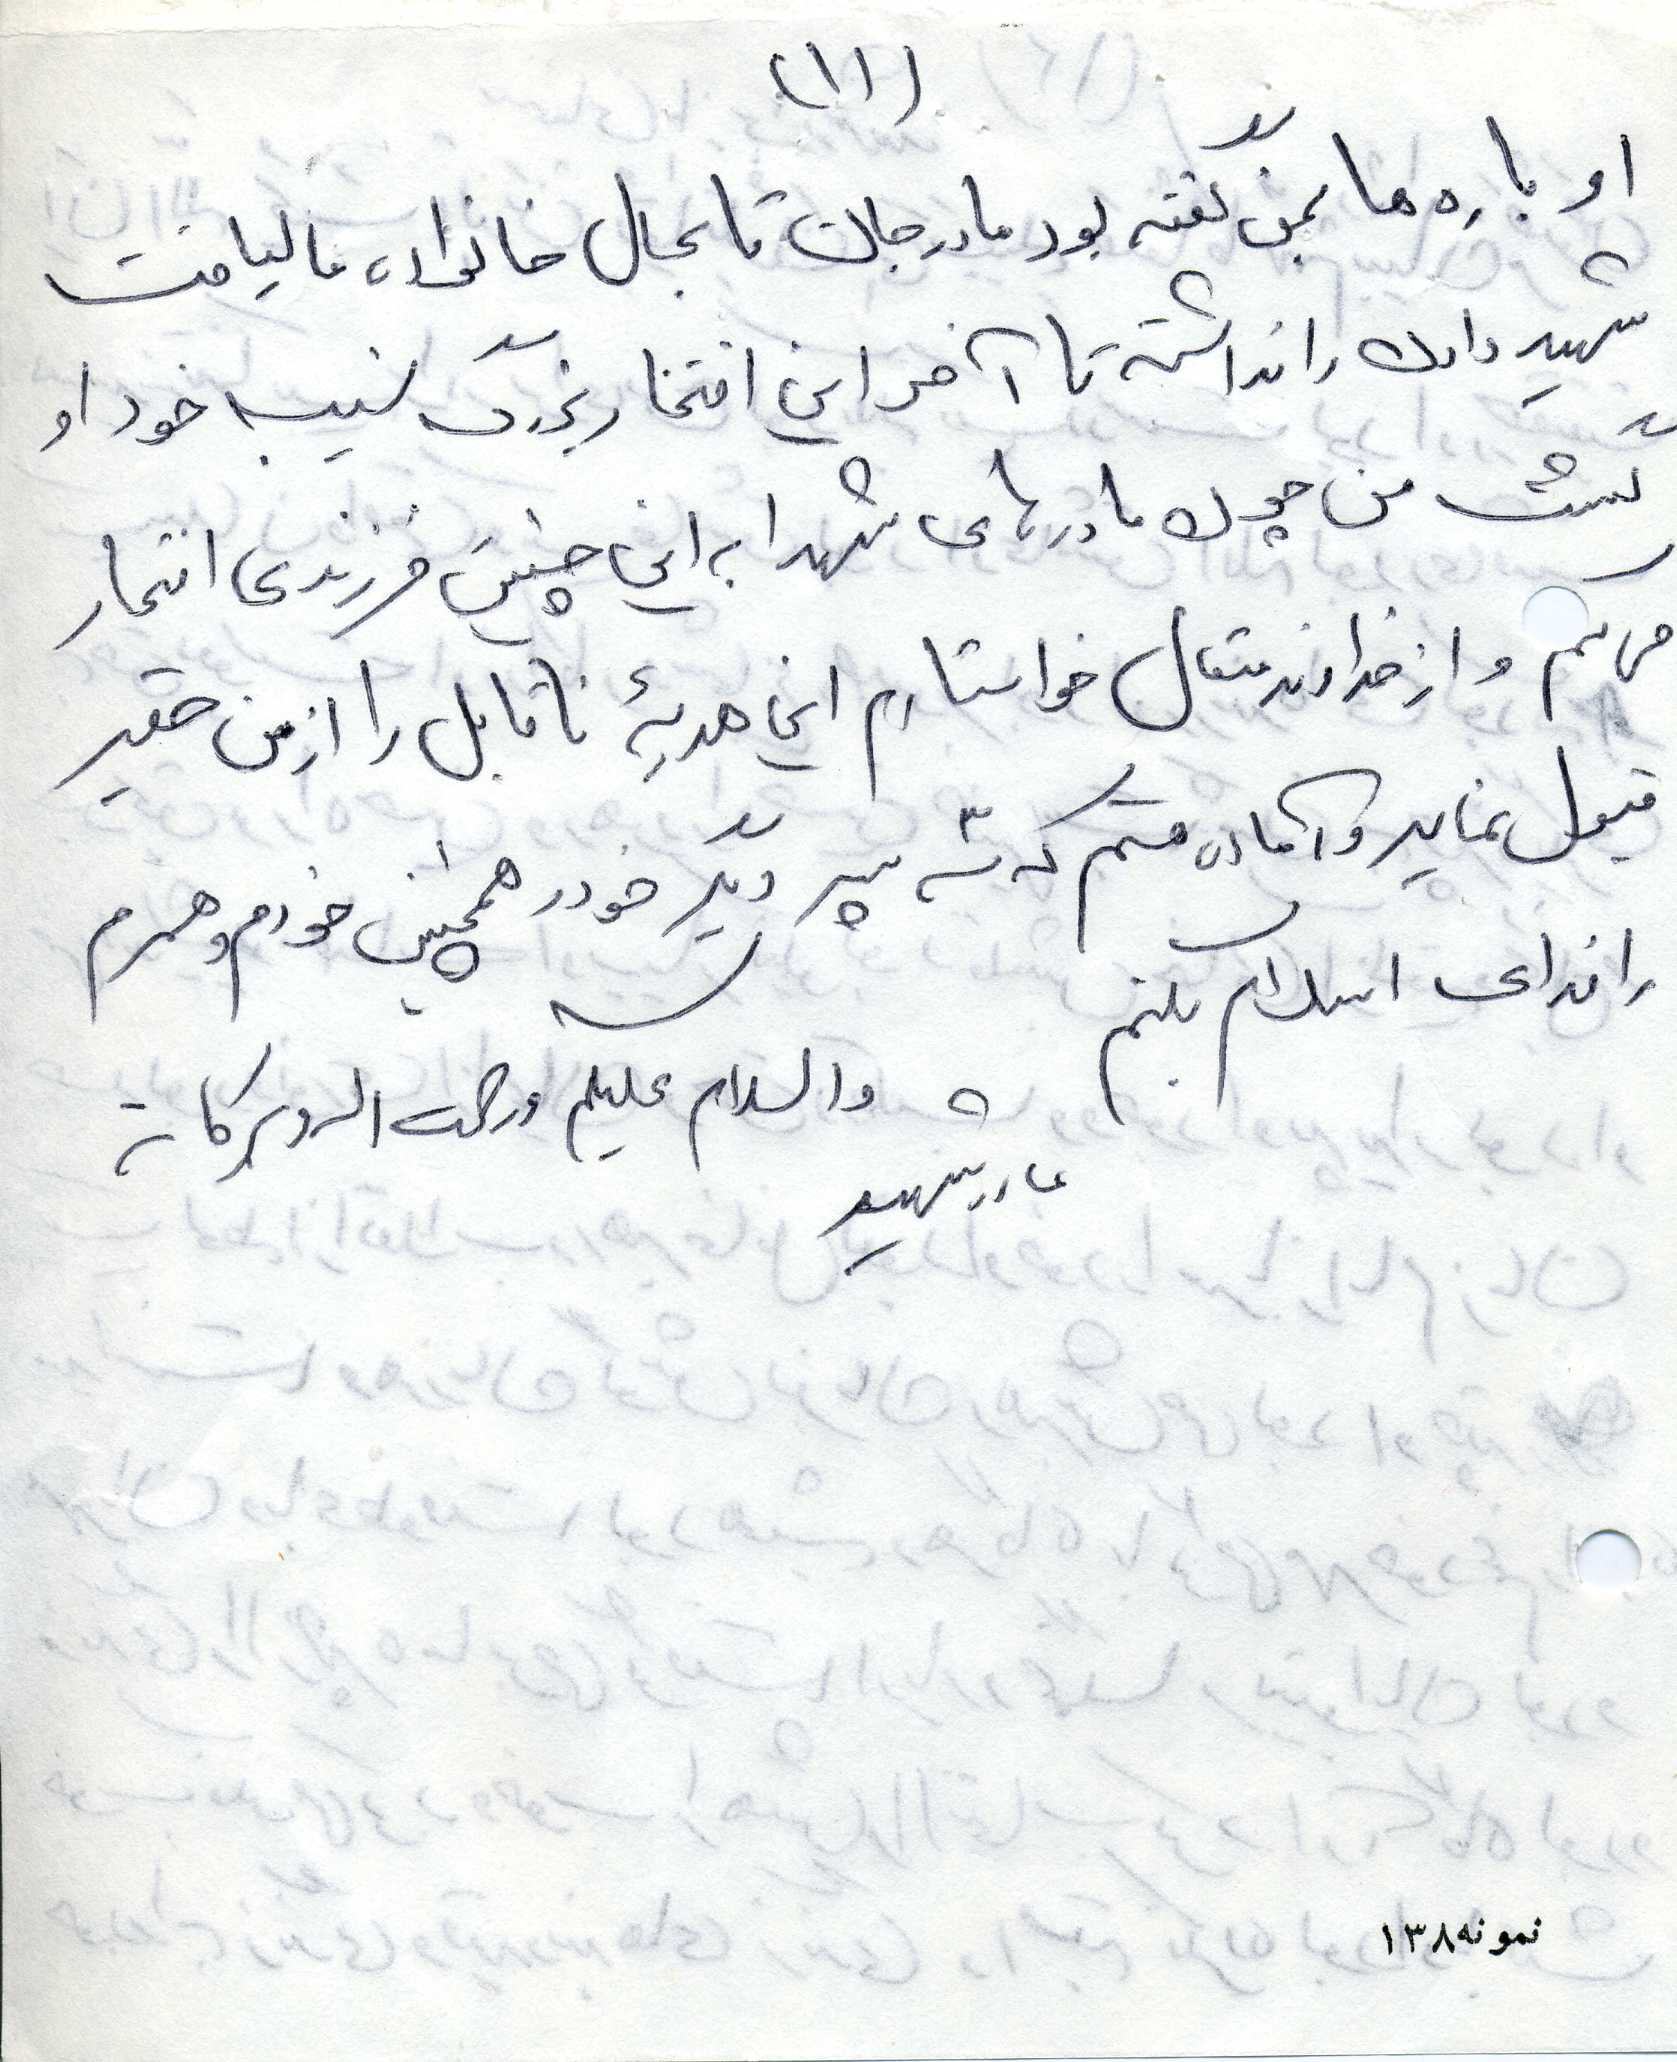 (۱۱)
او باره ها بمن گفته بود مادر جان تا بحال خانواده ما لیاقت
شهید دادن را نداشته تا آخر این افتخار بزرگ نسیبه خود او
گشت من چون مادرهای شهدا به این چنین فرزندی افتخار
می کنم و از خداوند متعال خواستارم این هدیهٔ ناقابل را از من حقیر
قبول نماید و آماده هستم که سه پسر دیگر خود و همچنین خودم و همسرم
را فدای اسلام بکنم
والسلام علیکم و رحمت اله و برکاته
مادر شهید
نمونه ۱۳۸